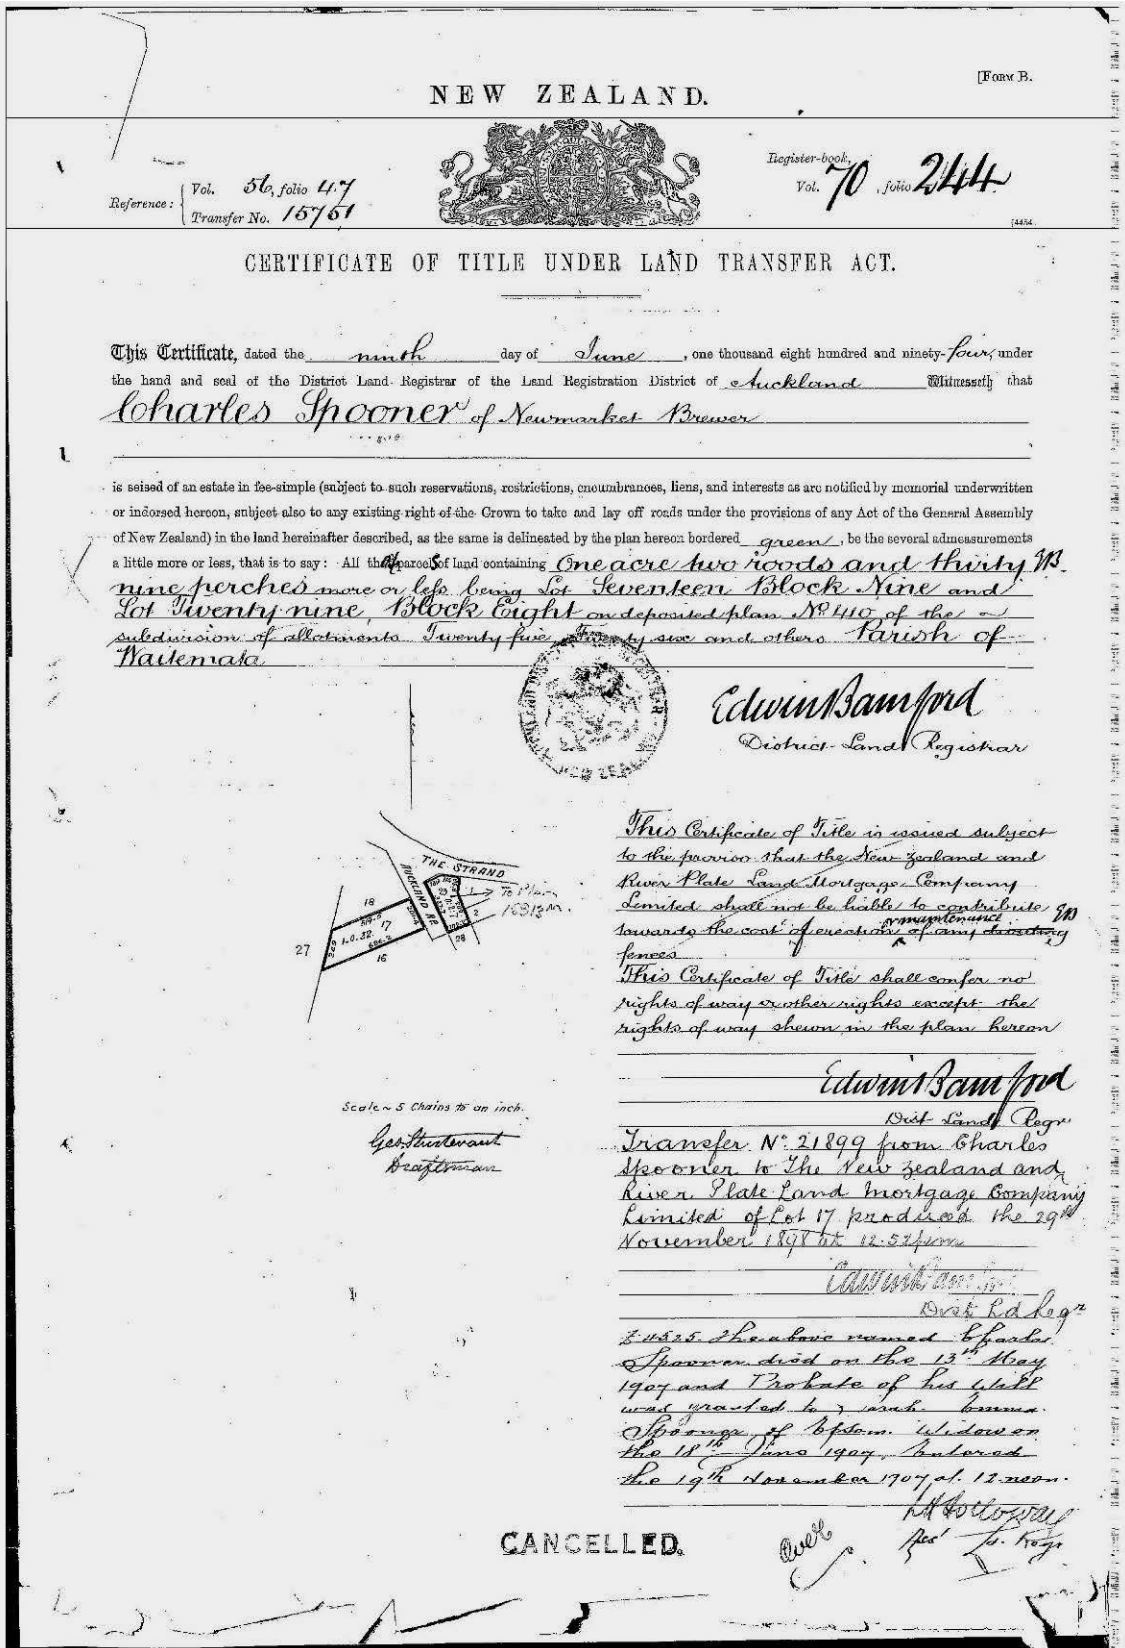 [FORM B.
NEW ZEALAND.
Reference: Vol. 56, folio 47
Transfer No. 15751
Register-book,
Vol. 70, folio 244
CERTIFICATE OF TITLE UNDER LAND TRANSFER ACT.
This Certificate, dated the ninth day of June, one thousand eight hundred and ninety-four, under
the hand and seal of the District Land Registrar of the Land Registration District of Auckland Witnesseth that
Charles Spooner of Newmarket Brewer
is seised of an estate in fee-simple (subject to such reservations, restrictions, encumbrances, liens, and interests as are notified by memorial underwritten
or indorsed hereon, subject also to any existing right of the Crown to take and lay off roads under the provisions of any Act of the General Assembly
of New Zealand) in the land hereinafter described, as the same is delineated by the plan hereon bordered green, be the several admeasurements
a little more or less, that is to say: All parcels of land containing One acre two roods and thirty EB.
nine perches more or less being Lot Seventeen Block Nine and
Lot Twenty nine, Block Eight on deposited plan No 410 of the
subdivision of allotments Twenty five Twenty six and others Parish of
Waitemata
Edwin Bamford
District Land Registrar
THE STRAND
AUCKLAND RD
To Plan
16313M.
18
17
1.0.32
27
16
29
1
2
28
Scale ~ 5 Chains to an inch.
Geo. Sturtevant
Draftsman
This Certificate of Title is issued subject
to the proviso that the New Zealand and
River Plate Land Mortgage Company
Limited shall not be liable to contribute EB
towards the cost of erection or maintenance of any dividing
fences
This Certificate of Title shall confer no
rights of way or other rights except the
rights of way shewn in the plan hereon
Edwin Bamford
Dist Land Regr
Transfer No. 21899 from Charles
Spooner to The New Zealand and
River Plate Land Mortgage Company
Limited of Lot 17 produced the 29th
November 1898 at 12.52 pm
Edwin Bamford
Dist Ld Regr
4525 The above named Charles
Spooner died on the 13th May
1907 and Probate of his Will
was granted to Sarah Emma
Spooner of Epsom Widow on
the 18th June 1907, Entered
the 19th November 1907 at 12 noon.
Holloway
CANCELLED.
Over